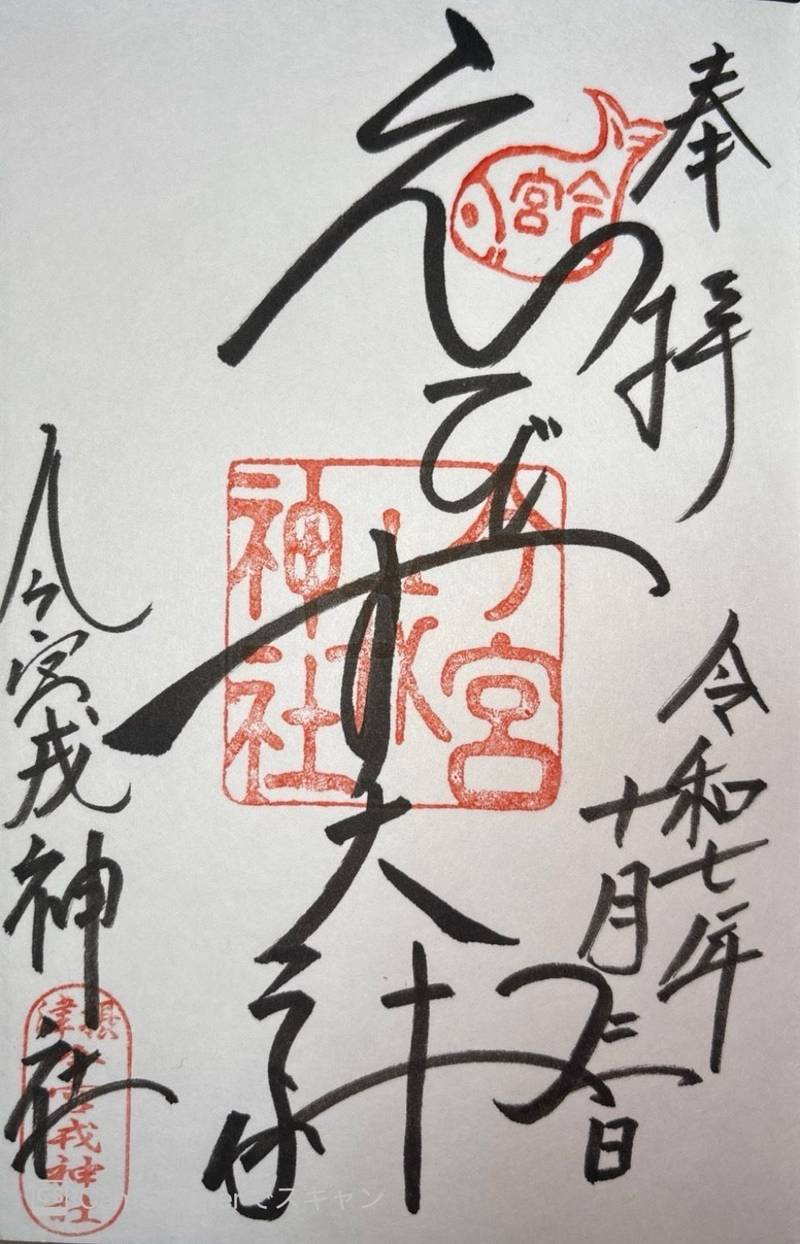 奉拝
令和七年
十月三日
えびす大神
今宮戎神社
今宮
今宮
戎
神社
摂津
今宮戎神社
でスキャン